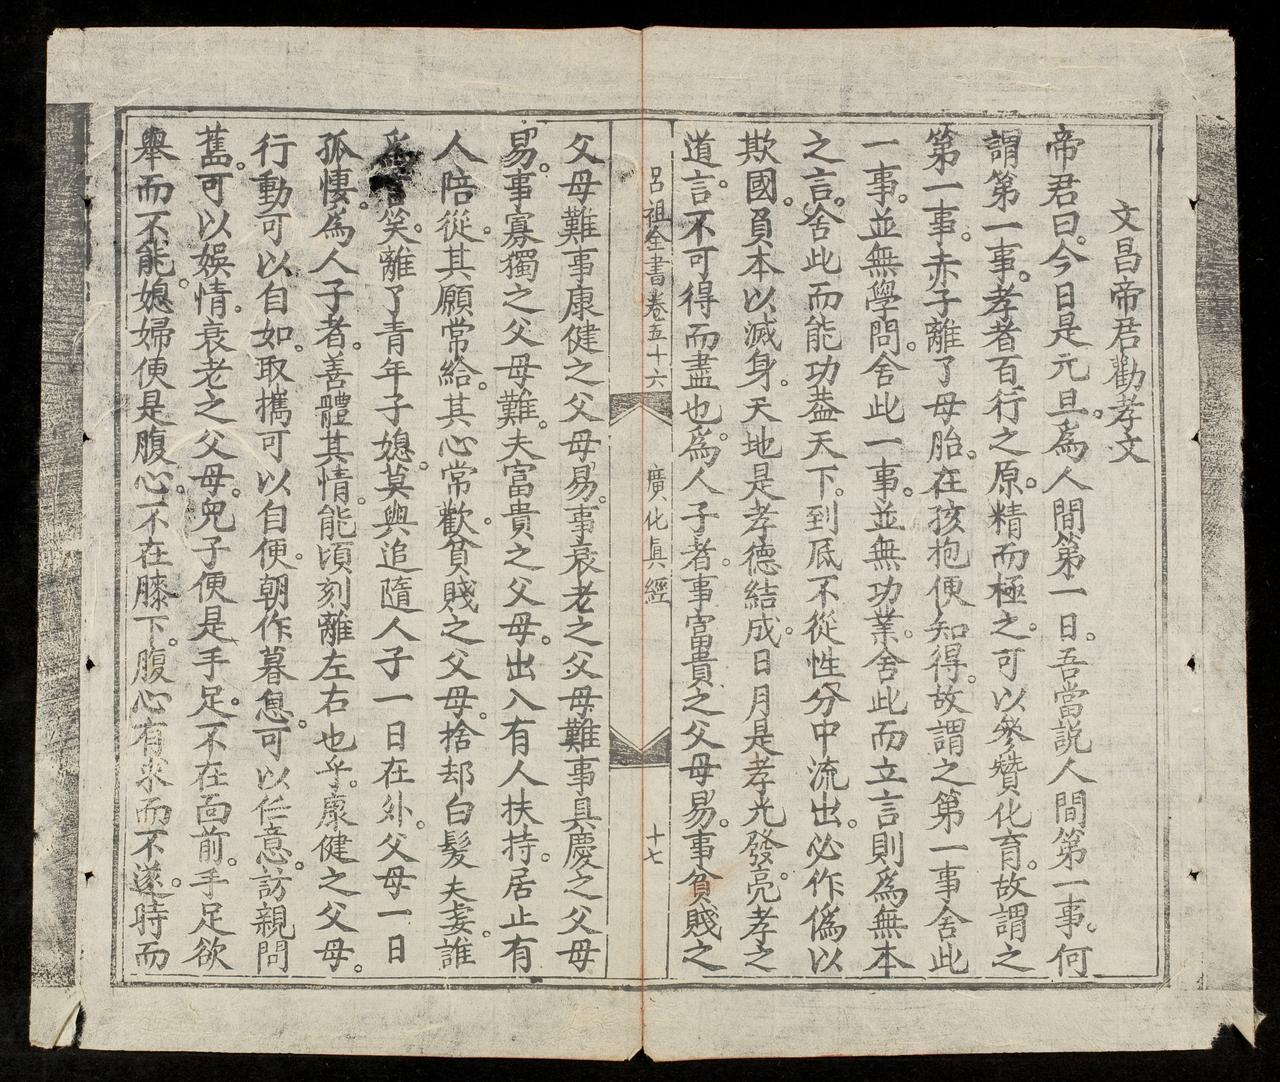 文昌帝君勸孝文
帝君曰。今日是元旦。爲人間第一日。吾當説人間第一事。何
謂第一事。孝者百行之原。精而極之。可以參贊化育。故謂之
第一事。赤子離了母胎。在孩抱便知得。故謂之第一事舍此
一事。並無學問。舍此一事。並無功業。舍此而立言則爲無本
之言。舍此而能功葢天下。到底不從性分中流出。必作僞以
欺國。負本以滅身。天地是孝德結成。日月是孝光發亮。孝之
道。言不可得而盡也。爲人子者。事富貴之父母易。事貧賤之
呂祖全書卷五十六 廣化眞經 十七
父母難事康健之父母易。事衰老之父母難事具慶之父母
易。事寡獨之父母難。夫富貴之父母。出入有人扶持。居止有
人陪從。其願常給。其心常歡。貧賤之父母。捨却白髮夫妻。誰
爲笑。離了青年子媳。莫與追隨人子一日在外。父母一日
孤悽。爲人子者。善體其情。能頃刻離左右也乎。康健之父母。
行動可以自如。取攜可以自便。朝作暮息。可以任意。訪親問
舊。可以娛情。衰老之父母。兒子便是手足。不在面前。手足欲
舉而不能。媳婦便是腹心。不在膝下。腹心有求而不遂。時而